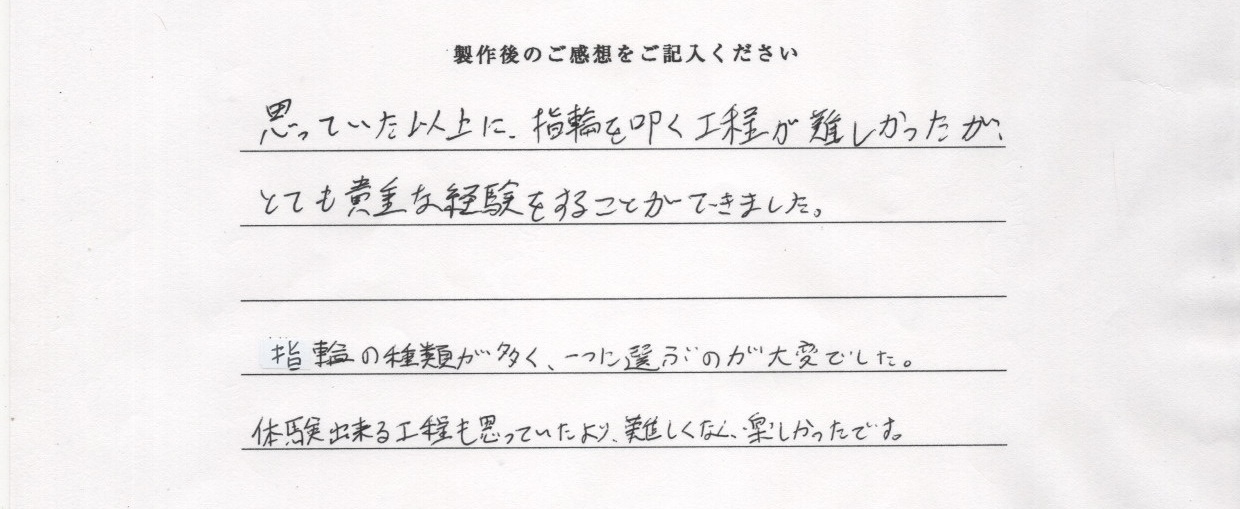 製作後のご感想をご記入ください
思っていた以上に、指輪を叩く工程が難しかったが、
とても貴重な経験をすることができました。
指輪の種類が多く、一つに選ぶのが大変でした。
体験出来る工程も思っていたより、難しくなく、楽しかったです。